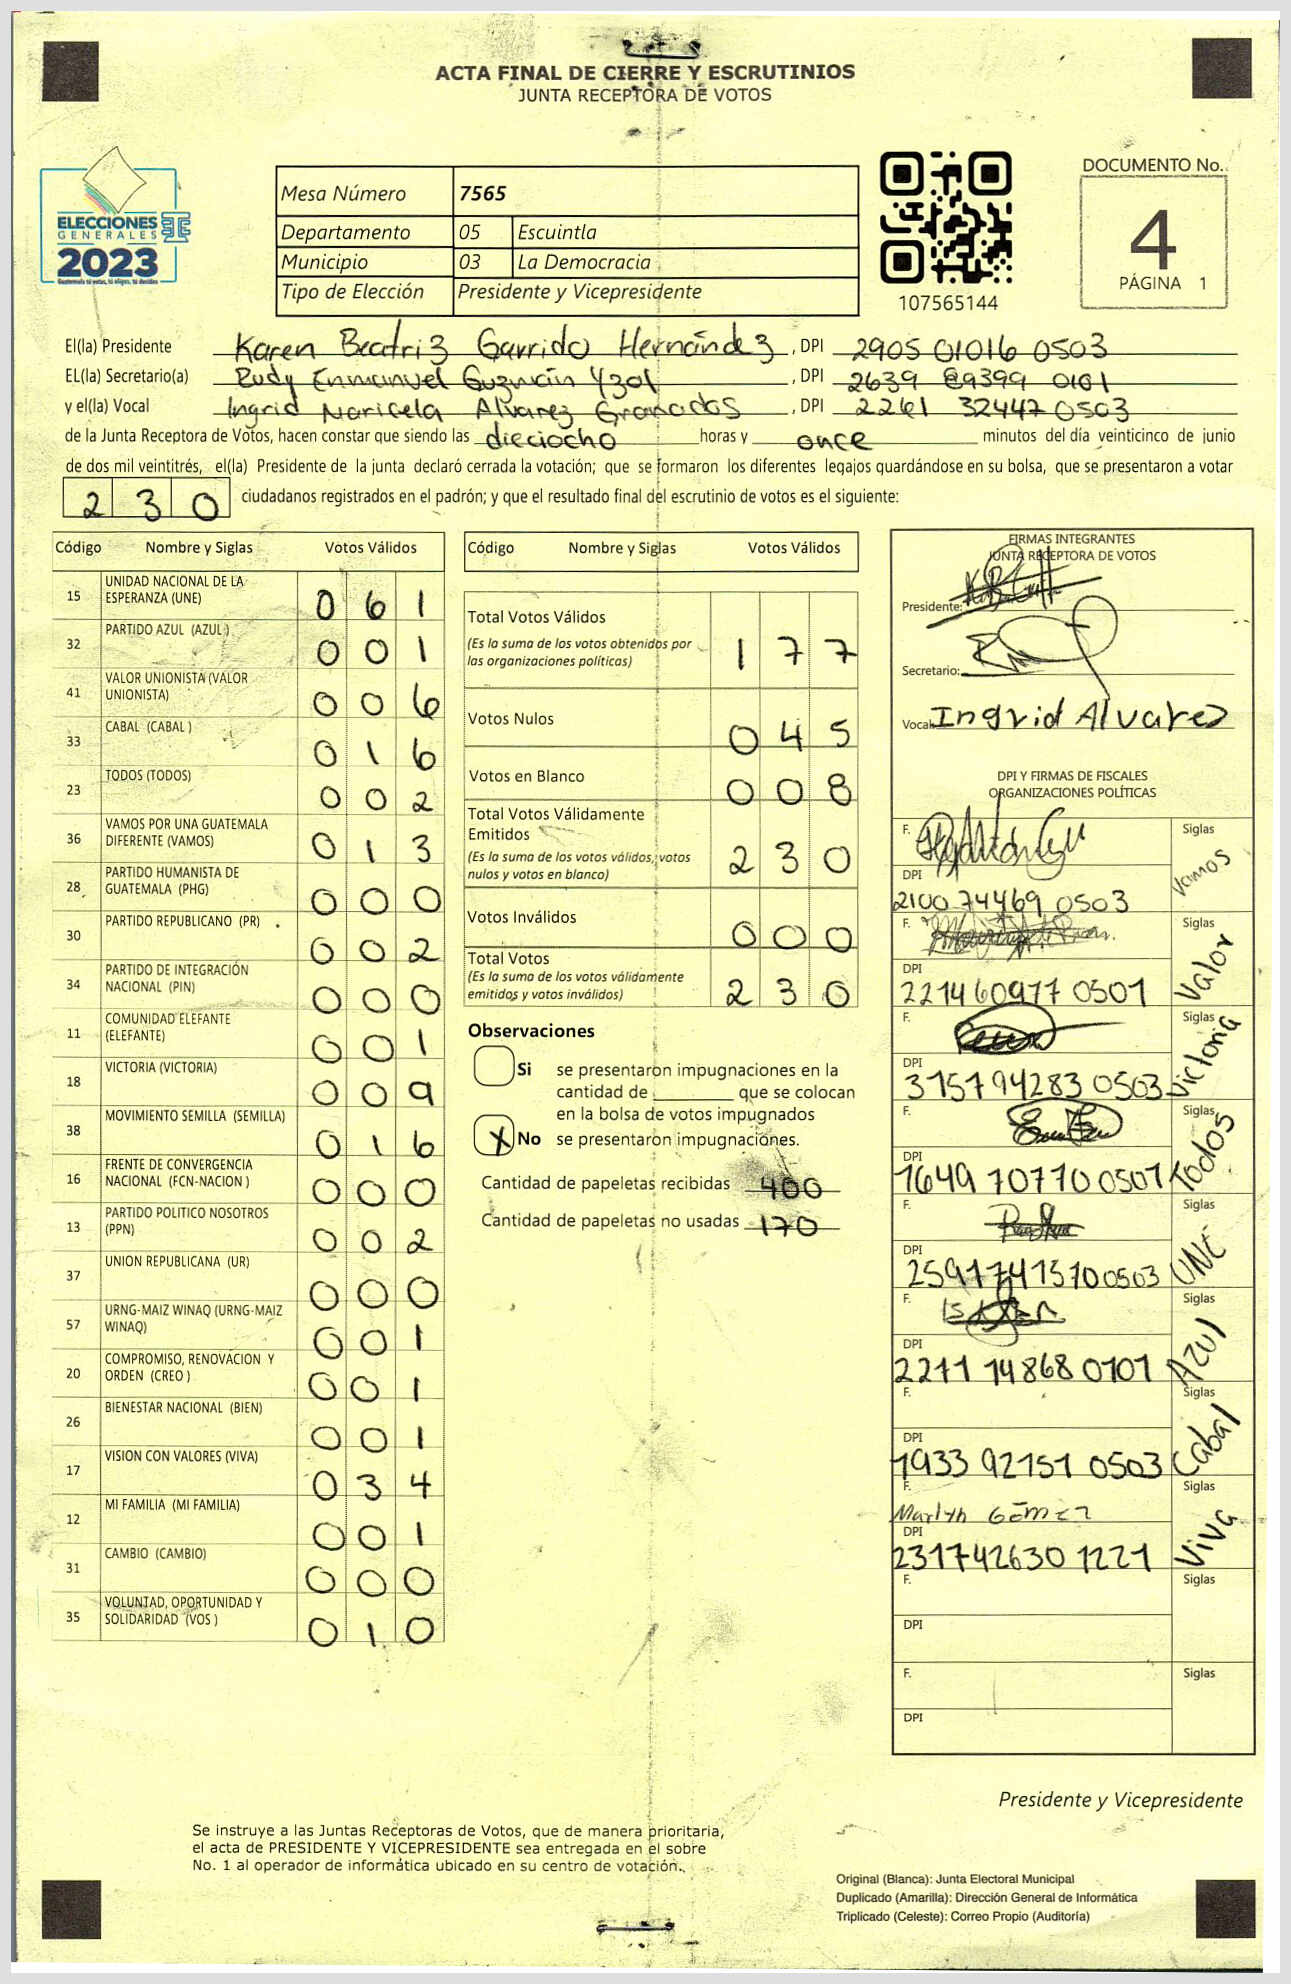 ACTA FINAL DE CIERRE Y ESCRUTINIOS
JUNTA RECEPTORA DE VOTOS
ELECCIONES
GENERALES
2023
Guatemala tú votas, tú eliges, tú decides
Mesa Número 7565
Departamento 05 Escuintla
Municipio 03 La Democracia
Tipo de Elección Presidente y Vicepresidente
107565144
DOCUMENTO No.
4
PÁGINA 1
El(la) Presidente Karen Beatriz Garrido Hernández, DPI 2905 01016 0503
EL(la) Secretario(a) Rudy Enmanuel Guzmán Yzol, DPI 2639 89399 0101
y el(la) Vocal Ingrid Maricela Alvarez Granados, DPI 2261 32447 0503
de la Junta Receptora de Votos, hacen constar que siendo las dieciocho horas y once minutos del día veinticinco de junio
de dos mil veintitrés, el(la) Presidente de la junta declaró cerrada la votación; que se formaron los diferentes legajos quardándose en su bolsa, que se presentaron a votar
2 3 0 ciudadanos registrados en el padrón; y que el resultado final del escrutinio de votos es el siguiente:
Código Nombre y Siglas Votos Válidos
15 UNIDAD NACIONAL DE LA ESPERANZA (UNE) 0 6 1
32 PARTIDO AZUL (AZUL) 0 0 1
41 VALOR UNIONISTA (VALOR UNIONISTA) 0 0 6
33 CABAL (CABAL ) 0 1 6
23 TODOS (TODOS) 0 0 2
36 VAMOS POR UNA GUATEMALA DIFERENTE (VAMOS) 0 1 3
28 PARTIDO HUMANISTA DE GUATEMALA (PHG) 0 0 0
30 PARTIDO REPUBLICANO (PR) 0 0 2
34 PARTIDO DE INTEGRACIÓN NACIONAL (PIN) 0 0 0
11 COMUNIDAD ELEFANTE (ELEFANTE) 0 0 1
18 VICTORIA (VICTORIA) 0 0 9
38 MOVIMIENTO SEMILLA (SEMILLA) 0 1 6
16 FRENTE DE CONVERGENCIA NACIONAL (FCN-NACION ) 0 0 0
13 PARTIDO POLITICO NOSOTROS (PPN) 0 0 2
37 UNION REPUBLICANA (UR) 0 0 0
57 URNG-MAIZ WINAQ (URNG-MAIZ WINAQ) 0 0 1
20 COMPROMISO, RENOVACION Y ORDEN (CREO ) 0 0 1
26 BIENESTAR NACIONAL (BIEN) 0 0 1
17 VISION CON VALORES (VIVA) 0 3 4
12 MI FAMILIA (MI FAMILIA) 0 0 1
31 CAMBIO (CAMBIO) 0 0 0
35 VOLUNTAD, OPORTUNIDAD Y SOLIDARIDAD (VOS ) 0 1 0
Código Nombre y Siglas Votos Válidos
Total Votos Válidos 1 7 7
(Es la suma de los votos obtenidos por
las organizaciones políticas)
Votos Nulos 0 4 5
Votos en Blanco 0 0 8
Total Votos Válidamente
Emitidos 2 3 0
(Es la suma de los votos válidos, votos
nulos y votos en blanco)
Votos Inválidos 0 0 0
Total Votos
(Es la suma de los votos válidamente
emitidos y votos inválidos) 2 3 0
Observaciones
Si se presentaron impugnaciones en la
cantidad de ________ que se colocan
en la bolsa de votos impugnados
X No se presentaron impugnaciones.
Cantidad de papeletas recibidas 400
Cantidad de papeletas no usadas 170
FIRMAS INTEGRANTES
JUNTA RECEPTORA DE VOTOS
Presidente:
Secretario:
Vocal Ingrid Alvarez
DPI Y FIRMAS DE FISCALES
ORGANIZACIONES POLÍTICAS
F. Siglas Vamos
DPI 2100 74469 0503
F. Siglas Valor
DPI 221460977 0501
F. Siglas Victoria
DPI 315794283 0503
F. Siglas Todos
DPI 1649 70770 0501
F. Siglas UNE
DPI 2591741570 0503
F. Siglas AZUL
DPI 2211 14868 0101
F. Siglas Cabal
DPI 1933 92151 0503
F. Marlyn Gómez Siglas Viva
DPI 231742630 1221
F. Siglas
DPI
F. Siglas
DPI
Presidente y Vicepresidente
Se instruye a las Juntas Receptoras de Votos, que de manera prioritaria,
el acta de PRESIDENTE Y VICEPRESIDENTE sea entregada en el sobre
No. 1 al operador de informática ubicado en su centro de votación.
Original (Blanca): Junta Electoral Municipal
Duplicado (Amarilla): Dirección General de Informática
Triplicado (Celeste): Correo Propio (Auditoría)